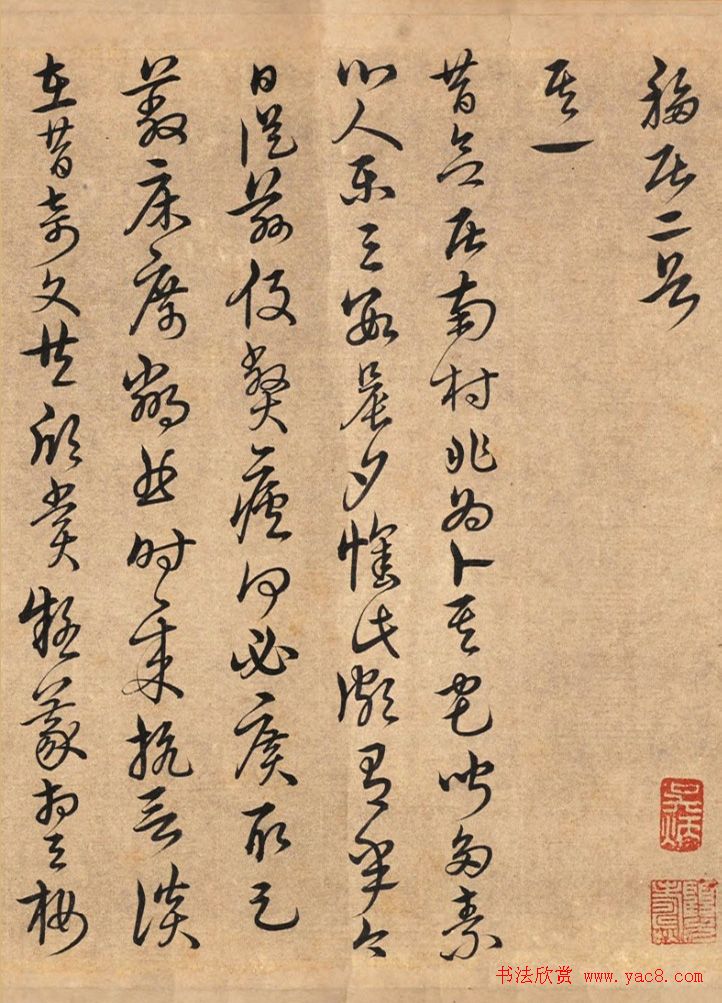 移居二首
其一
昔欲居南村非为卜其宅闻多素
心人乐与數晨夕懷此頗有年今
日従茲役弊廬何必廣取足
蔽床席鄰曲时々来抗言談
在昔奇文共欣賞疑義相与析
书法欣赏 www.yac8.com